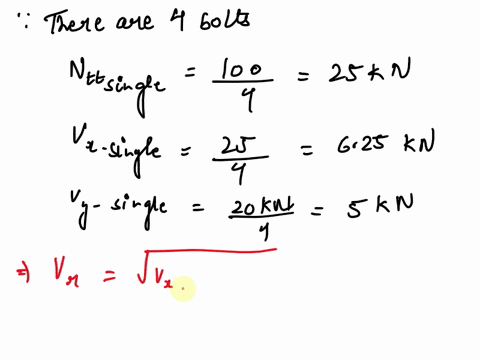 ∵ There are 4 bolts
N_tt single = 100/4 = 25 kN
V_x-single = 25/4 = 6.25 kN
V_y-single = 20 kN/4 = 5 kN
⇒ V_r = √V_x